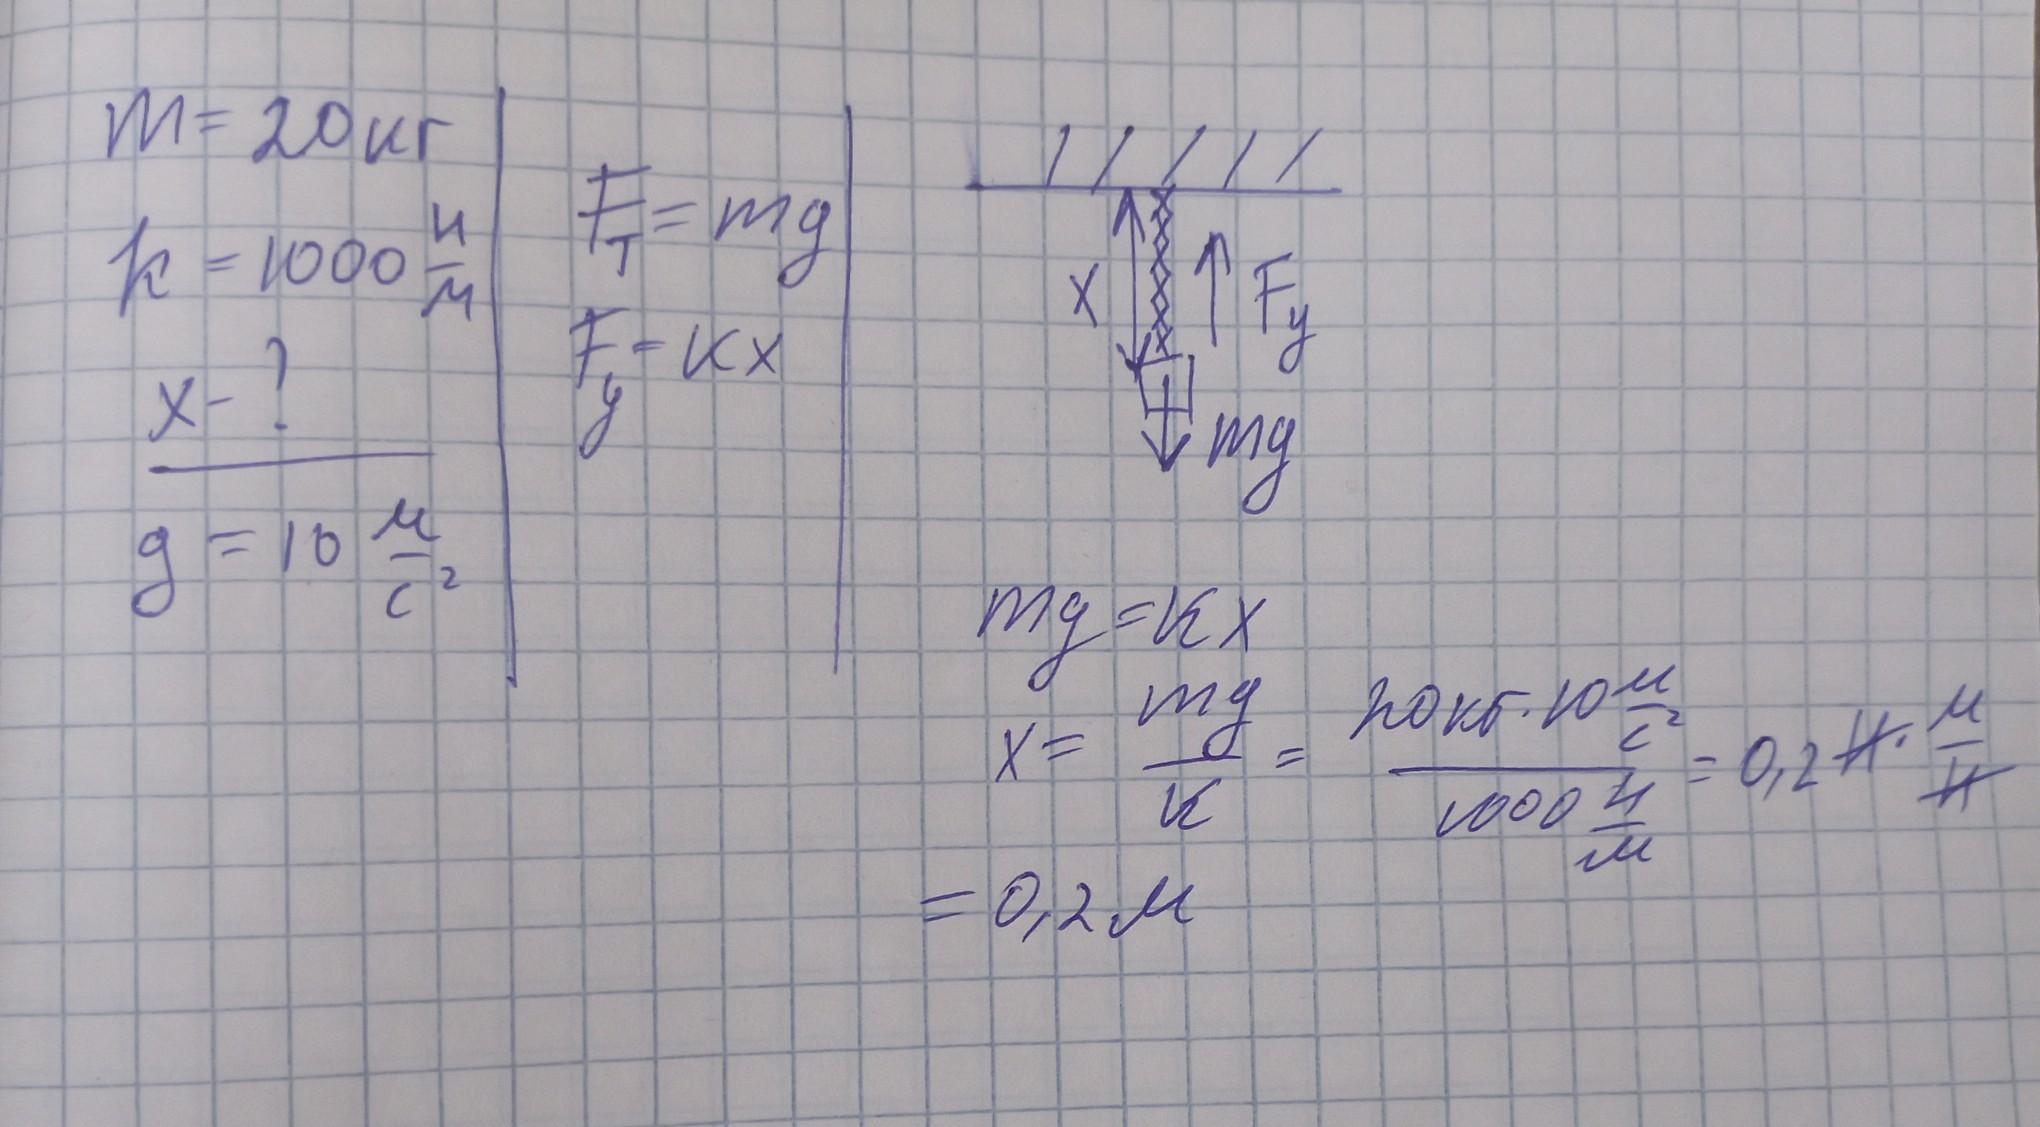 m = 20 кг
k = 1000 н/м
x - ?
g = 10 м/с²
Fт = mg
Fу = кx
x
Fу
mg
mg = кx
x = mg/к = 20 кг · 10 м/с² / 1000 н/м = 0,2 Н · м/Н
= 0,2 м